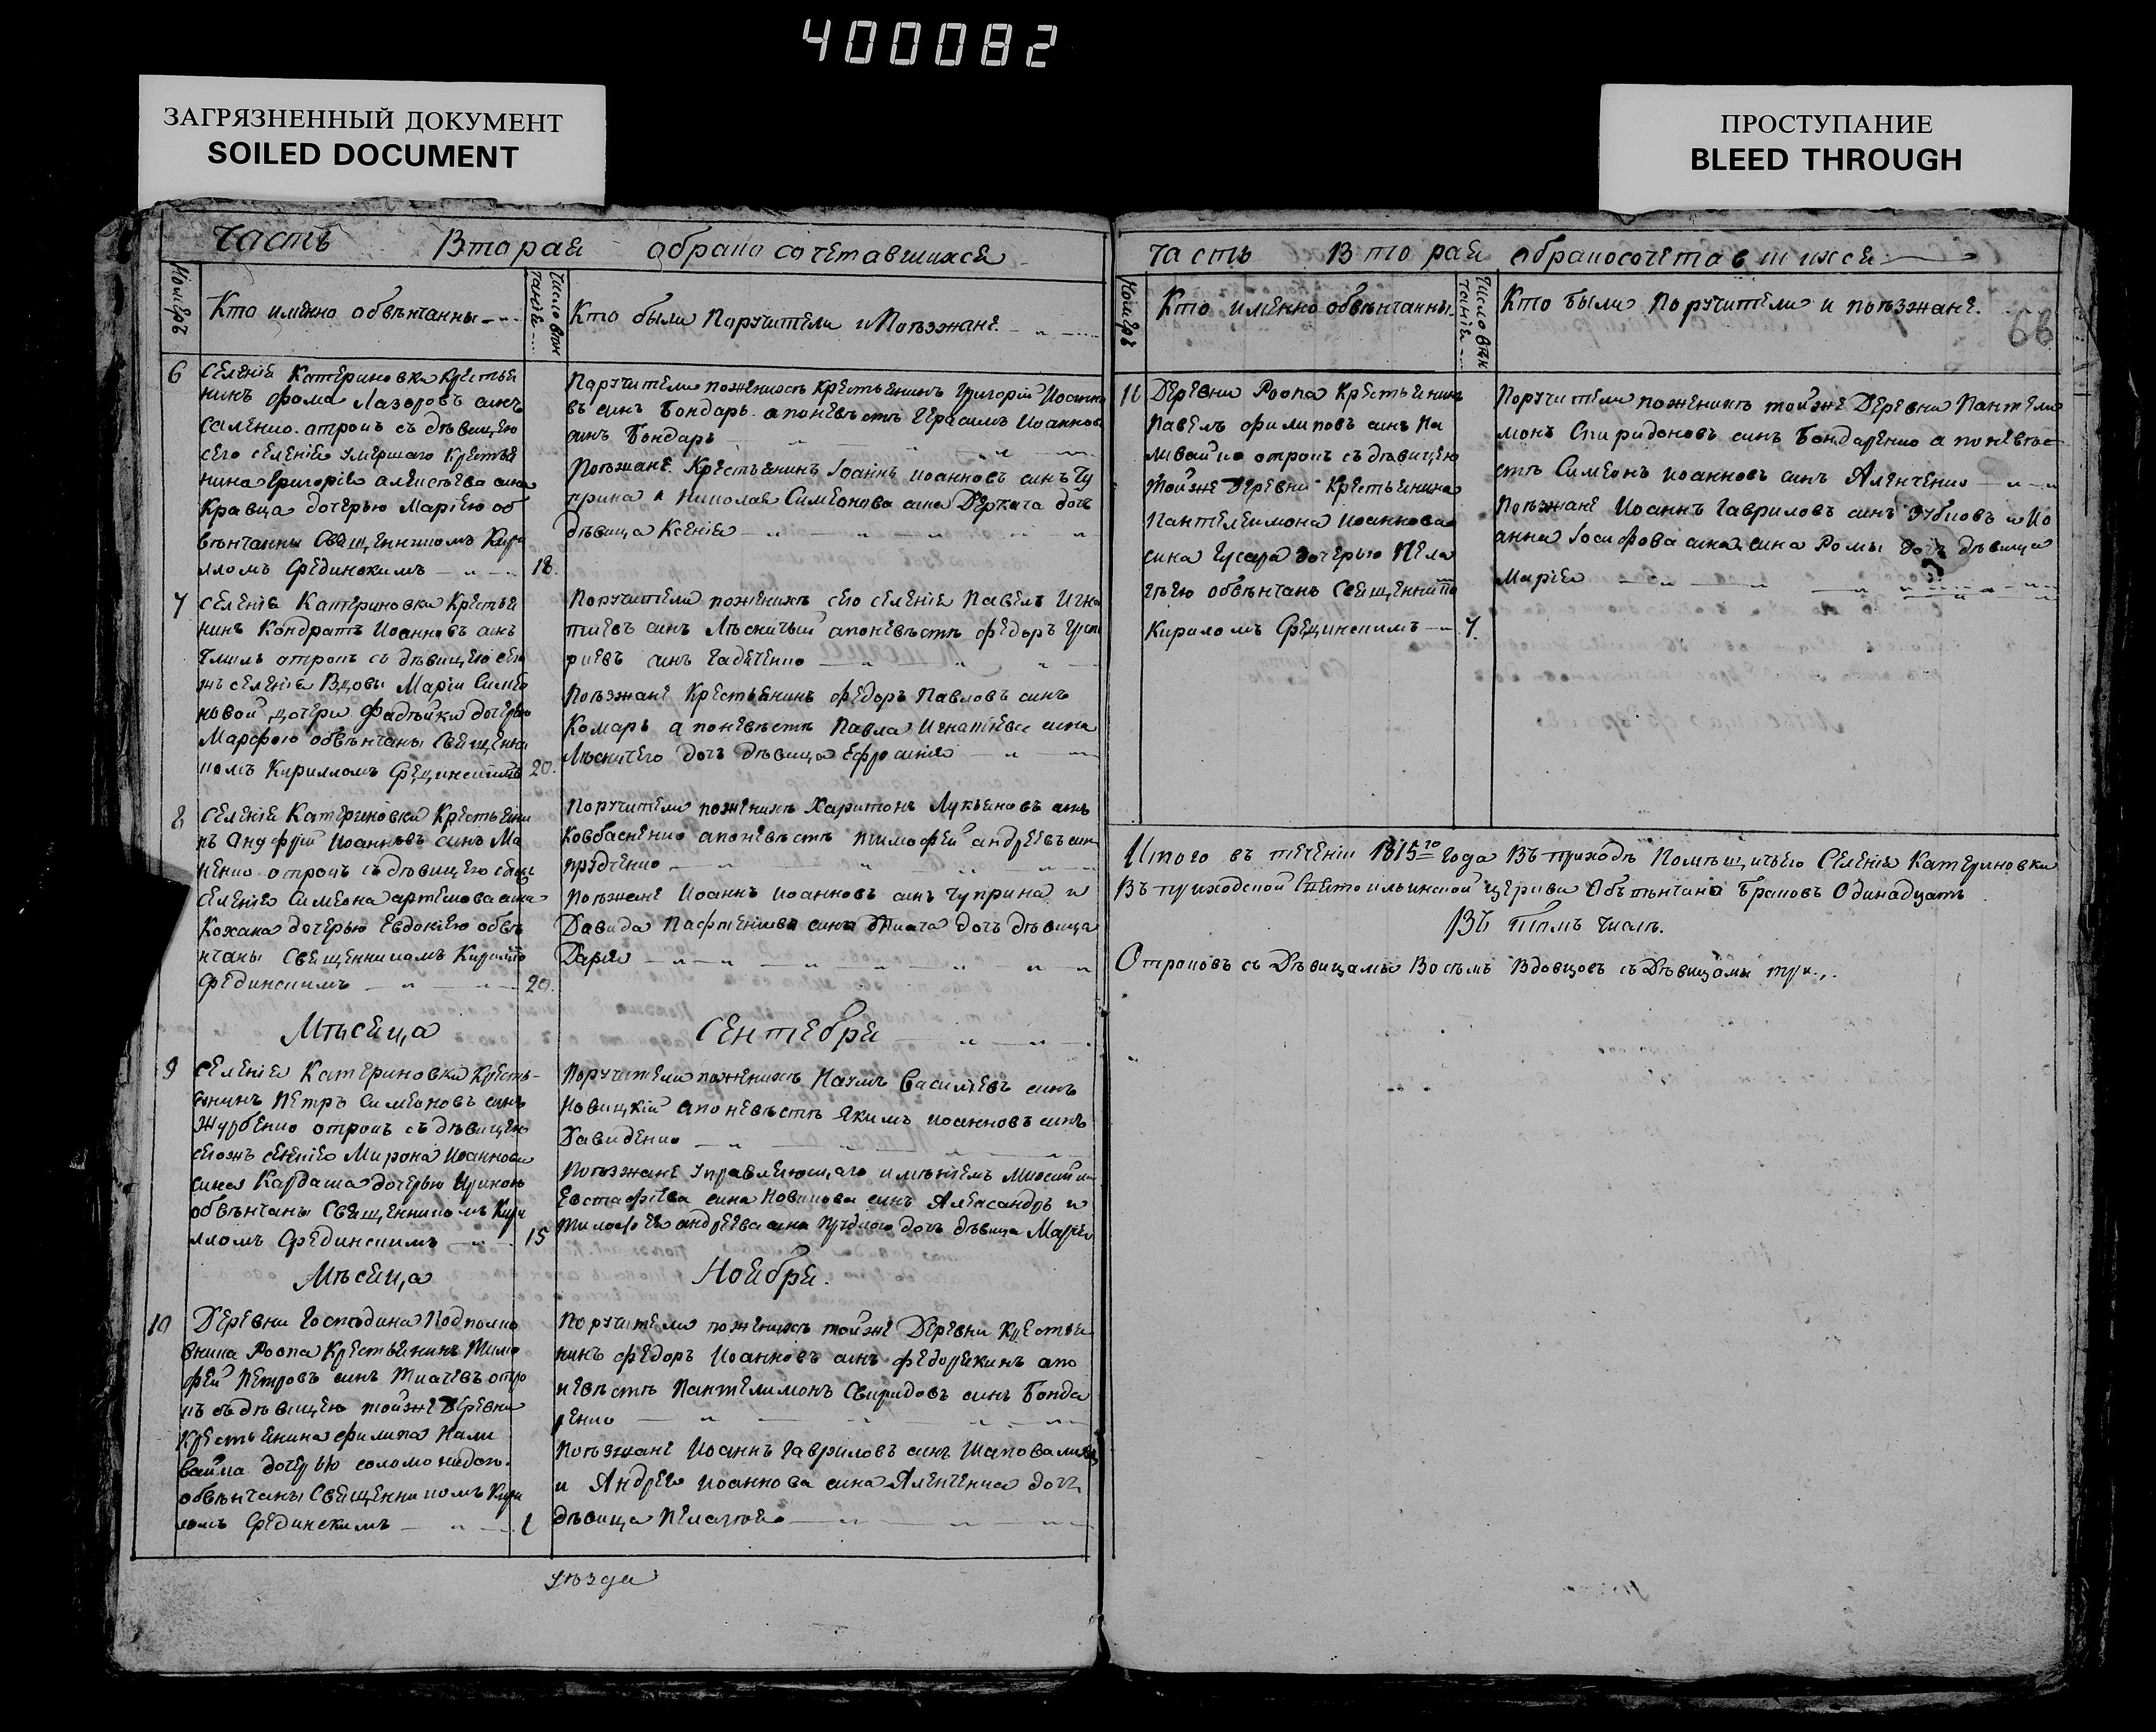 400082
ЗАГРЯЗНЕННЫЙ ДОКУМЕНТ
SOILED DOCUMENT
ПРОСТУПАНИЕ
BLEED THROUGH
Часть Вторая обракосочетавшихся
Номеръ
Кто имянно обвѣнчанны
Число вѣн
чанїя
Кто были Поручители и Поѣзжанѣ
6
Селенія Катериновки Крестья
нинъ фома Лазоровъ синъ
отрокъ съ дѣвицею
сего селенія умершаго Крестья
нина Григорія алексѣева сина
Кравца дочерью Маріею об
вѣнчанны Священникомъ Кири
лломъ Фединскимъ
18.
Поручители поженихѣ Крестьянинъ Григорій Иоанно
въ синъ Бондарь а поневѣстѣ Герасимъ Иоанновъ
синъ Бондарь
Поѣзжанѣ Крестьянинъ Іоаннъ иоанновъ синъ Чу
прина и николая Симеонова сина Деркача дочь
дѣвица Ксенія
7
селенія Катериновки Крестья
нинъ Кондратъ Иоанновъ синъ
отрокъ съ дѣвицею сего
жъ селенія Вдовы Маріи Симео
новой дочери Фадѣйки дочерью
Марфою обвѣнчаны Священни
комъ Кирилломъ Фединскимъ
20.
Поручители поженихѣ сего селенія Павелъ Игна
тиевъ синъ Лѣсничый апоневѣстѣ федоръ Григо
риевъ синъ Гадяченко
Поѣзжанѣ Крестьянинъ федоръ Павловъ синъ
Комарь а поневѣстѣ Павла Игнатіева сина
Лѣсничего дочь дѣвица Ефросинія
8
Селенія Катериновки Крестьяни
нъ Онуфрій Иоанновъ синъ Ма
ненко отрокъ съ дѣвицею сегожъ
селенія Симеона артемова сина
Кохана дочерью Евдокіею обвѣ
нчаны Священникомъ Кирилло
Фединскимъ
20.
Поручители поженихѣ Харитонъ Лукьяновъ синъ
Ковбасненко апоневѣстѣ тимофей андреевъ синъ
Прудченко
Поѣзжанѣ Иоаннъ иоанновъ синъ Чуприна и
Давида Парфтеніева сина Ткача дочь дѣвица
Дарія
Мѣсяца Сентебря
9
селенія Катериновки Кресть-
янинъ Петръ Симеоновъ синъ
Журбенко отрокъ съ дѣвицею
сегожъ селенія Мирона Иоаннова
сина Кардаша дочерью Ириною
обвѣнчаны Священникомъ Кири
лломъ Фединскимъ
15
Поручители поженихѣ Наумъ Василіевъ синъ
Новицкій апоневѣстѣ Якимъ иоанновъ синъ
Давиденко
Поѣзжанѣ управляющаго имѣніемъ
Евстафіева сина Новикова синъ Александръ и
Тимофея андреева сина Прудкого дочь дѣвица Марія
Мѣсяца Ноября.
10
Деревни Господина Подполко
вника Роопа Крестьянинъ Тимо
фей Петровъ синъ Ткачевъ отро
къ съ дѣвицею тойже Деревни
Крестьянина филипа Нали
вайка дочерью соломонидою
обвѣнчаны Священникомъ Кири
ломъ Фединскимъ
1
Поручители поженихѣ тойже Деревни Крестья
нинъ федоръ Иоанновъ синъ федоряжинъ апо
невѣстѣ Пантелимонъ Свиридовъ синъ Бонда
ренко
Поѣзжанѣ Иоаннъ Гавриловъ синъ
и Андрея иоаннова сина Аленченка дочь
дѣвица Пелагіея
уѣзда
Часть Вторая обракосочетавшихся
66
Номеръ
Кто именно обвѣнчанны
Число вѣн
чанія
Кто были Поручители и поѣзжанѣ.
11
Деревни Роопа Крестьянинъ
Павелъ филиповъ синъ На
ливайко отрокъ съ дѣвицею
тойже Деревни Крестьянина
Пантелеимона иоаннова
сина Гусара дочерью Пела
гѣею обвѣнчанъ Священнико
Кириломъ Фединскимъ
7.
Поручители поженихѣ тойже Деревни Пантели
монъ Спиридоновъ синъ Бондаренко а поневѣ
стѣ Симеонъ иоанновъ синъ Аленченко
Поѣзжанѣ Иоаннъ Гавриловъ синъ Зубковъ и Ио
анна Іосифова сина сина Ромы дочь дѣвица
Марія
Итого въ теченіи 1815го года Въ приходѣ Помѣщичьего Селенія Катериновки
Въ приходской Святоильинской церкви Обвѣнчано Браковъ Одинадцать
Въ томъ числѣ.
Отроковъ съ Дѣвицами Восемъ Вдовцовъ съ Дѣвицами три.